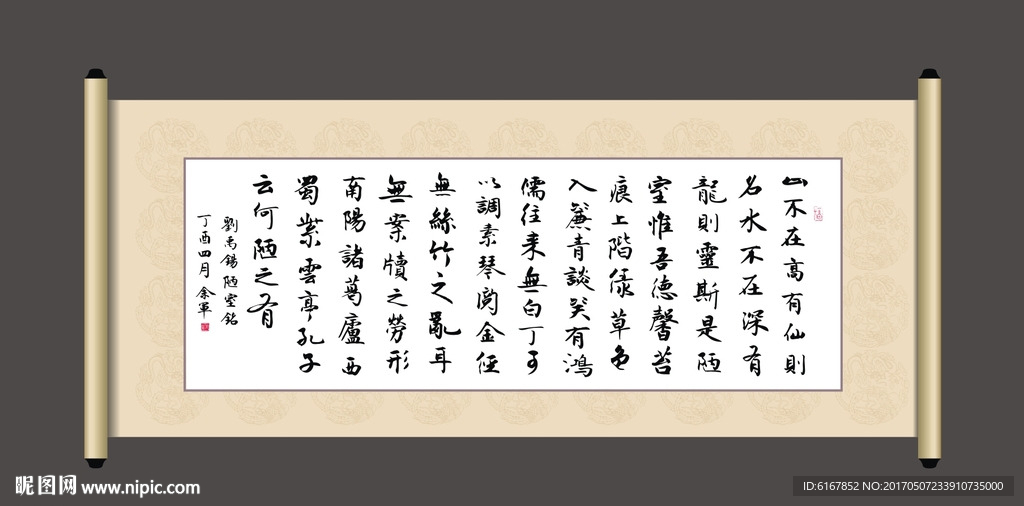 山不在高有仙則
名水不在深有
龍則靈斯是陋
室惟吾德馨苔
痕上階緑草色
入簾青談笑有鴻
儒往来無白丁可
以調素琴閲金經
無絲竹之亂耳
無案牘之勞形
南陽諸葛廬西
蜀紫雲亭孔子
云何陋之有
劉禹錫陋室銘
丁酉四月余軍
昵图网 www.nipic.com
ID:6167852 NO:20170507233910735000